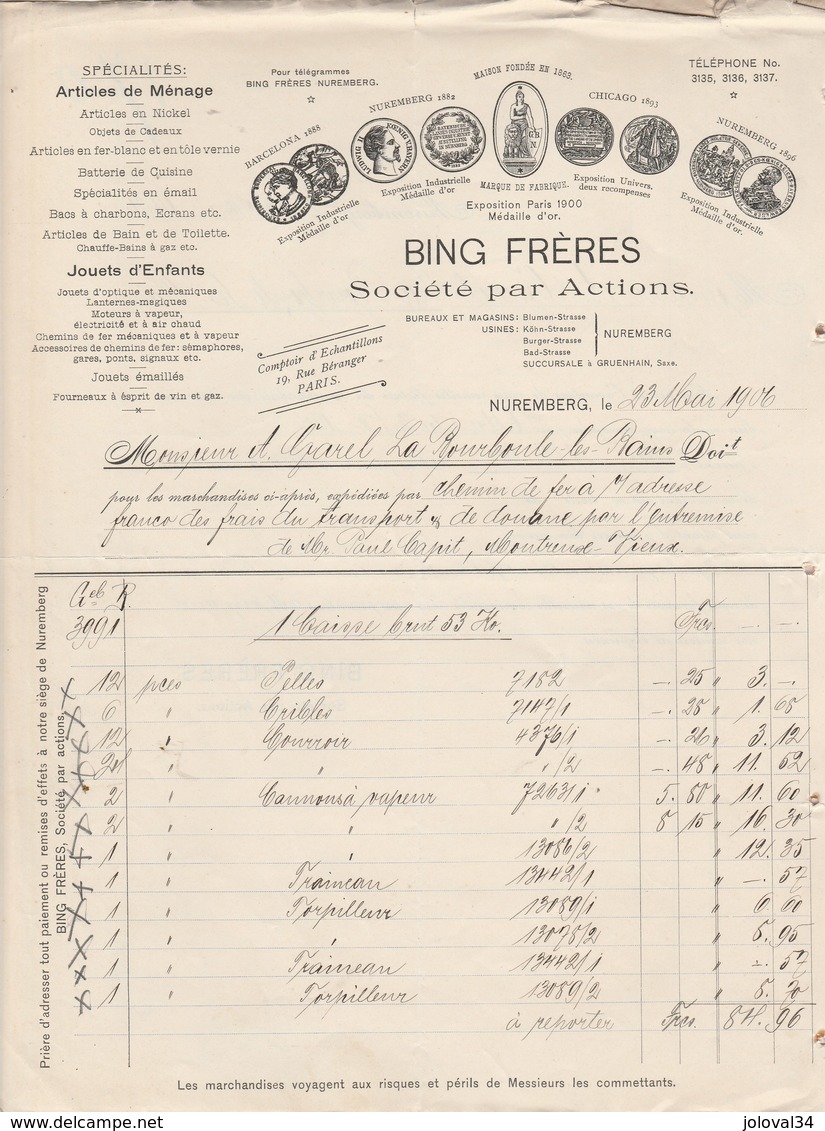 SPÉCIALITÉS:
Articles de Ménage
Articles en Nickel
Objets de Cadeaux
Articles en fer-blanc et en tôle vernie
Batterie de Cuisine
Spécialités en émail
Bacs à charbons, Ecrans etc.
Articles de Bain et de Toilette.
Chauffe-Bains à gaz etc.
Jouets d'Enfants
Jouets d'optique et mécaniques
Lanternes-magiques
Moteurs à vapeur,
électricité et à air chaud
Chemins de fer mécaniques et à vapeur
Accessoires de chemins de fer: sémaphores,
gares, ponts, signaux etc.
Jouets émaillés
Fourneaux à ésprit de vin et gaz.
Pour télégrammes
BING FRÈRES NUREMBERG.
BARCELONA 1888
Exposition Industrielle
Médaille d'or
NUREMBERG 1882
Exposition Industrielle
Médaille d'or
MAISON FONDÉE EN 1863.
MARQUE DE FABRIQUE.
Exposition Paris 1900
Médaille d'or.
CHICAGO 1893
Exposition Univers.
deux recompenses
NUREMBERG 1896
Exposition Industrielle
Médaille d'or.
TÉLÉPHONE No.
3135, 3136, 3137.
BING FRÈRES
Société par Actions.
BUREAUX ET MAGASINS: Blumen-Strasse
USINES: Köhn-Strasse
Burger-Strasse
Bad-Strasse
NUREMBERG
SUCCURSALE à GRUENHAIN, Saxe.
Comptoir d'Echantillons
19, Rue Béranger
PARIS.
NUREMBERG, le 23 Mai 1906
Monsieur A. Garel, La Bourboule-les-Bains Doit
pour les marchandises ci-après, expédiées par chemin de fer à l'adresse
franco des frais du transport & de douane par l'entremise
de Mr. Paul Capit, Montreux-Vieux.
Geb R.
3991 1 Caisse brut 53 Ko. Frcs. —. —
12 pces Pelles 7182 —. 25 " 3. —.
6 " Cribles 7147/1 —. 28 " 1. 68
12 " Courroir 4376/1 —. 26 " 3. 12
24 " " "/2 —. 48 " 11. 52
2 " Cannons à vapeur 7263/1 5. 80 " 11. 60
2 " " "/2 8 15 " 16. 30
1 " " 13086/2 " 12. 35
1 " Traineau 13442/1 " —. 57
1 " Torpilleur 13089/1 " 6. 60
1 " " 13078/2 " 8. 95
1 " Traineau 13442/1 " —. 57
1 " Torpilleur 13089/2 " 8. 70
à reporter Frcs. 84. 96
Les marchandises voyagent aux risques et périls de Messieurs les commettants.
Prière d'adresser tout paiement ou remises d'effets à notre siège de Nuremberg
BING FRÈRES, Société par actions.
www.delcampe.net
joloval34